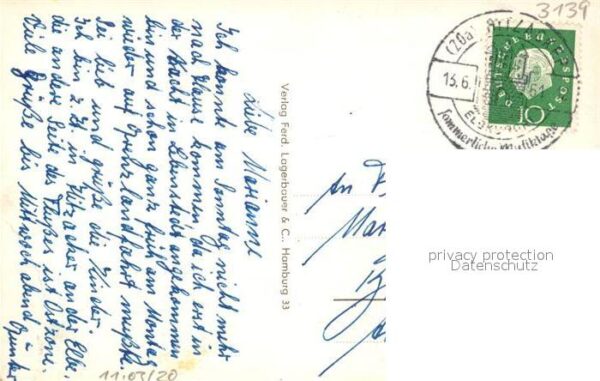 3139
(20a) HITZA
13.6.
ELBE
Sommerliche Musiktage
DEUTSCHE BUNDESPOST
10
Liebe Marianne
Ich konnte am Sonntag nicht mehr
nach Hause kommen, da ich erst in
der Nacht in angekommen
bin und schon ganz früh am Montag
wieder auf Grenzlandfahrt mußte.
Sei lieb und grüße die Kinder.
Ich bin z. Zt. in Hitzacker an der Elbe.
die andere Seite des Flußes ist Ostzone.
Viele Grüße bis Mittwoch abend
Günter
Verlag Ferd. Lagerbauer & C., Hamburg 33
An
Mar
privacy protection
Datenschutz
11.03/20